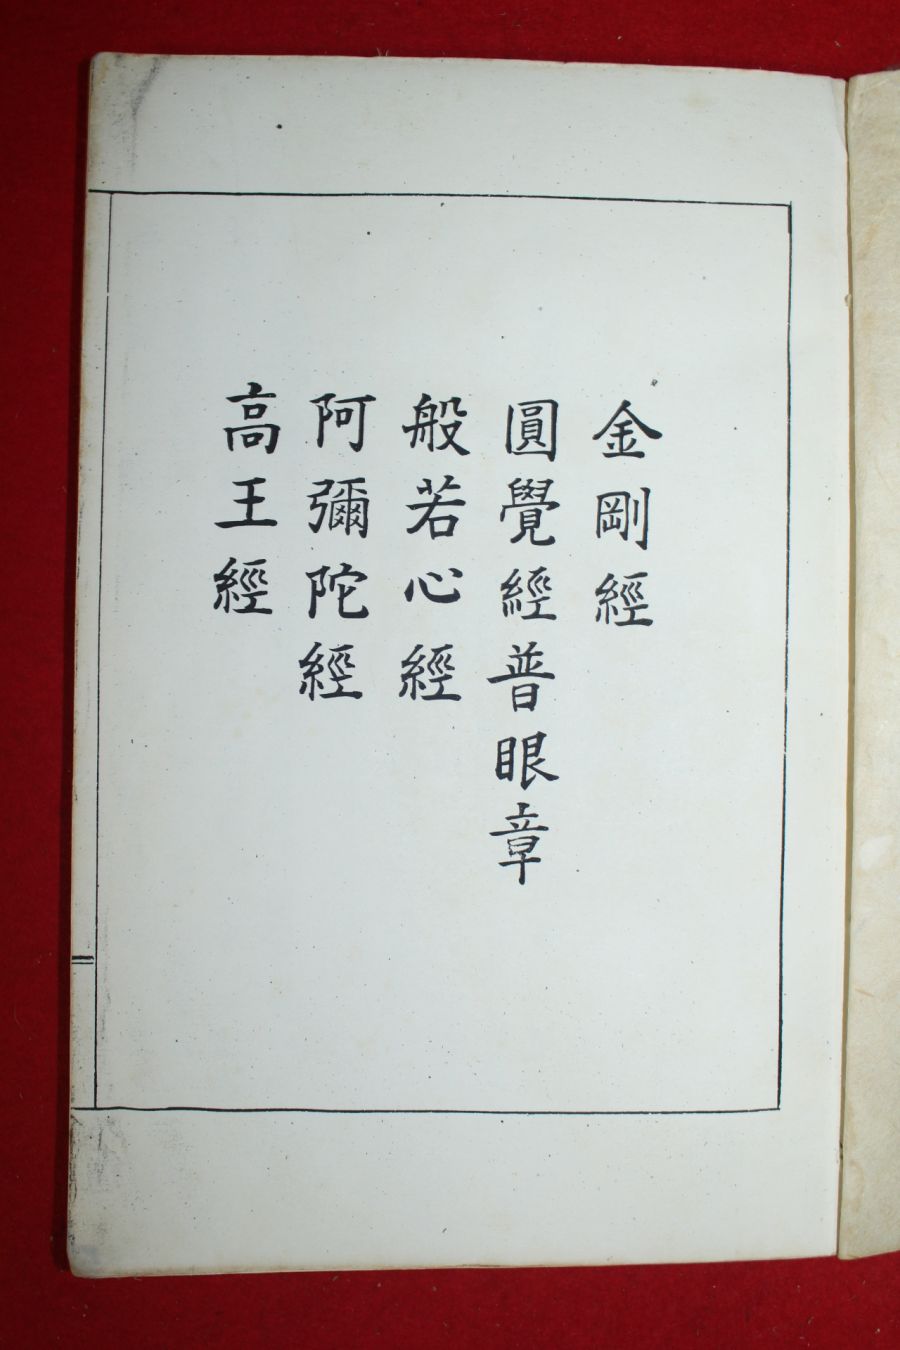 金剛經
圓覺經普眼章
般若心經
阿彌陀經
高王經